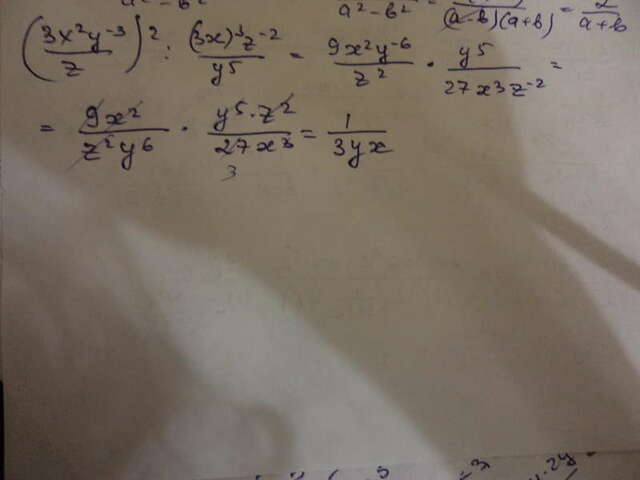 a² - b² a² - b² = (a-b)(a+b) = 2/(a+b)
(3x²y⁻³/z)² : (3x)³z⁻²/y⁵ = 9x²y⁻⁶/z² · y⁵/27x³z⁻² =
= 9x²/z²y⁶ · y⁵·z²/27x³ = 1/3yx
3